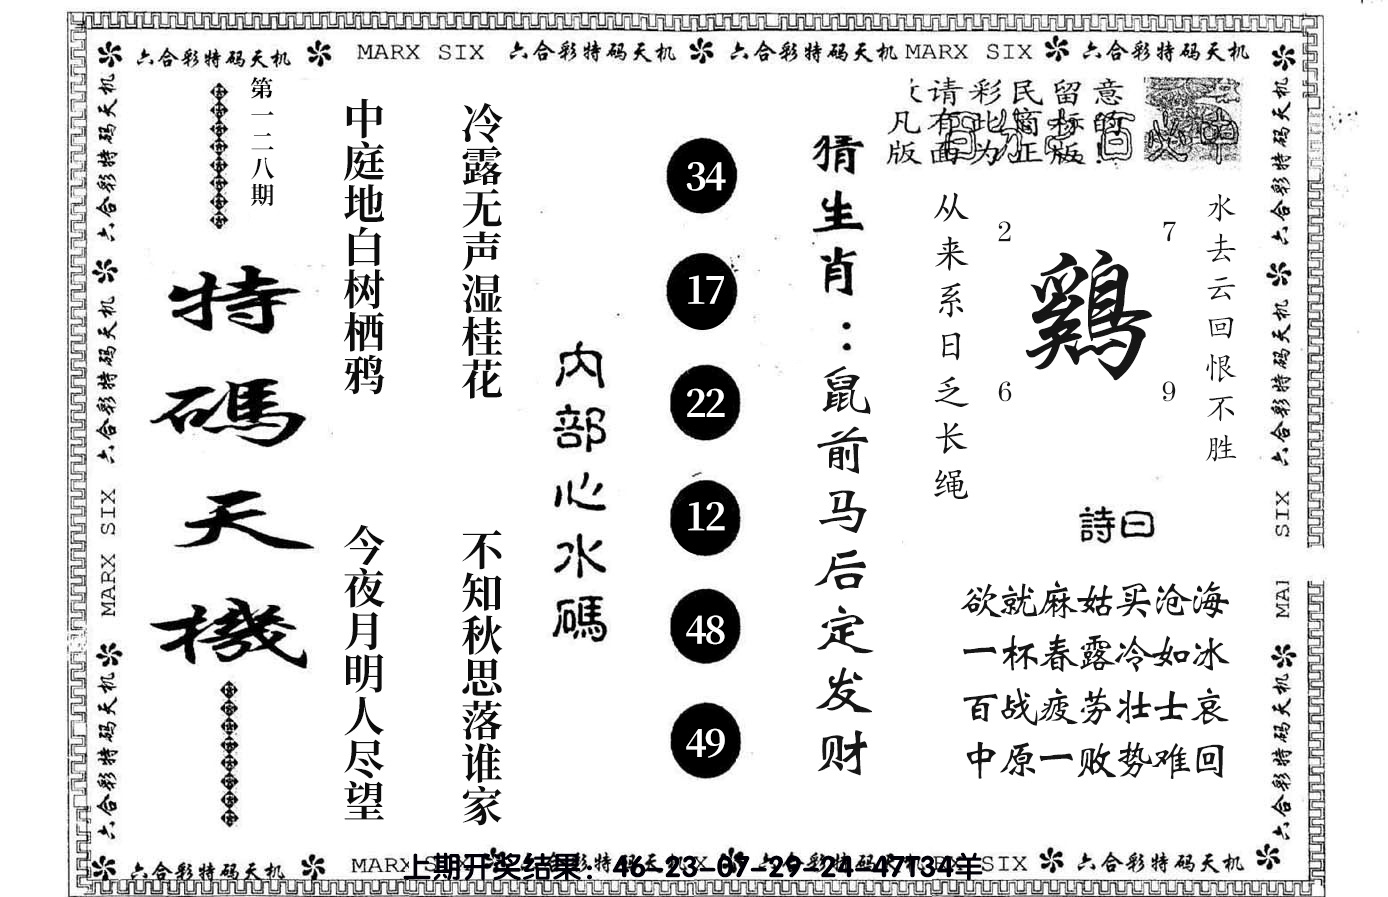 六合彩特码天机 MARX SIX 六合彩特码天机 六合彩特码天机 MARX SIX 六合彩特码天机
第一二八期
特碼天機
中庭地白树栖鸦
今夜月明人尽望
冷露无声湿桂花
不知秋思落谁家
内部心水碼
34
17
22
12
48
49
猜生肖：鼠前马后定发财
请彩民留意
凡有此窗标的
版面为正版!
从来系日乏长绳
水去云回恨不胜
2
7
鷄
6
9
詩曰
欲就麻姑买沧海
一杯春露冷如冰
百战疲劳壮士哀
中原一败势难回
六合彩特码天机 六合彩特码天机 MARX SIX 六合彩特码天机
六合彩特码天机 六合彩特码天机 SIX MAI 六合彩特码天机
六合彩特码天机 MARX SIX 六合彩特码天机
上期开奖结果：46-23-07-29-24-47T34羊